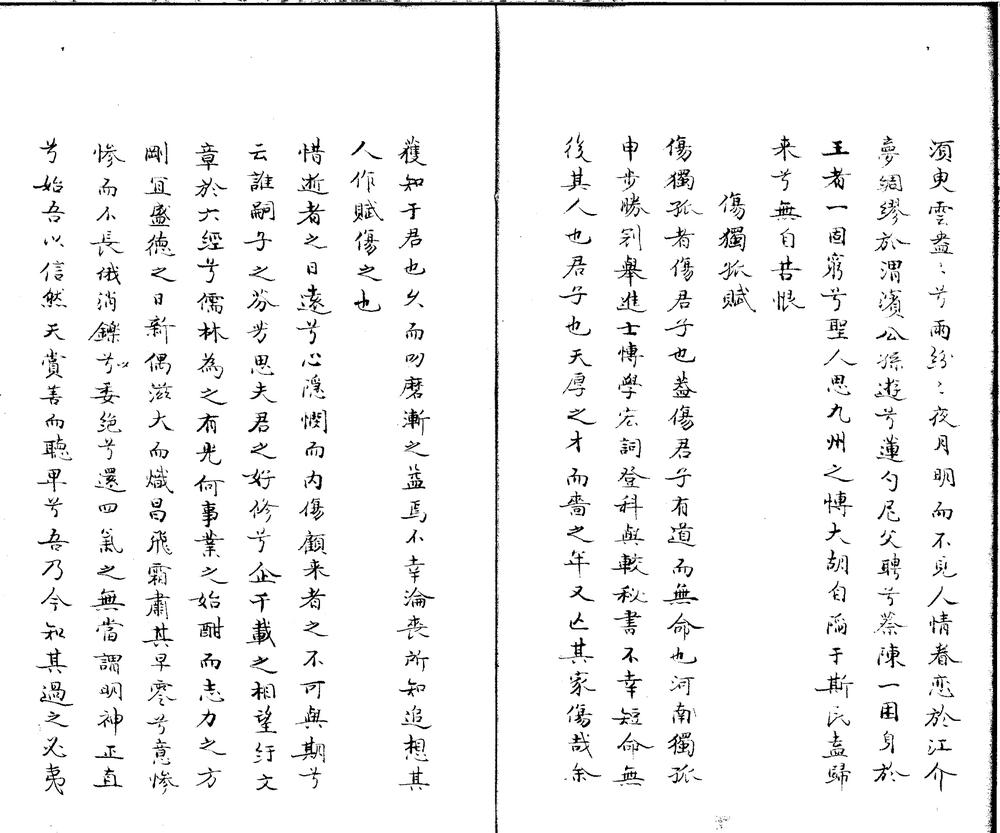 須臾雲盡〻兮雨紛〻夜月明而不見人情眷戀於江介
夢綢繆於渭濱公孫遊兮蓮勺尼父聘兮蔡陳一困身於
王者一固窮兮聖人思九州之博大胡自隘于斯民盍歸
来兮無自苦恨
傷獨孤賦
傷獨孤者傷君子也盖傷君子有道而無命也河南獨孤
申步勝冠舉進士博學宏詞登科與較秘書不幸短命無
後其人也君子也天厚之才而嗇之年又亡其家傷哉余
獲知于君也久而叨磨漸之益焉不幸淪喪所知追想其
人作賦傷之也
惜逝者之日遠兮心隱憫而内傷顧来者之不可與期兮
云誰嗣子之芬芳思夫君之好修兮企千載之相望紆文
章於六經兮儒林為之有光何事業之始酣而志力之方
剛宜盛德之日新偶滋大而熾昌飛霜肅其早零兮意慘
慘而不長俄消鑠兮委絶兮還四氣之無當謂明神正直
兮始吾以信然天賞善而聽卑兮吾乃今知其過之必夷